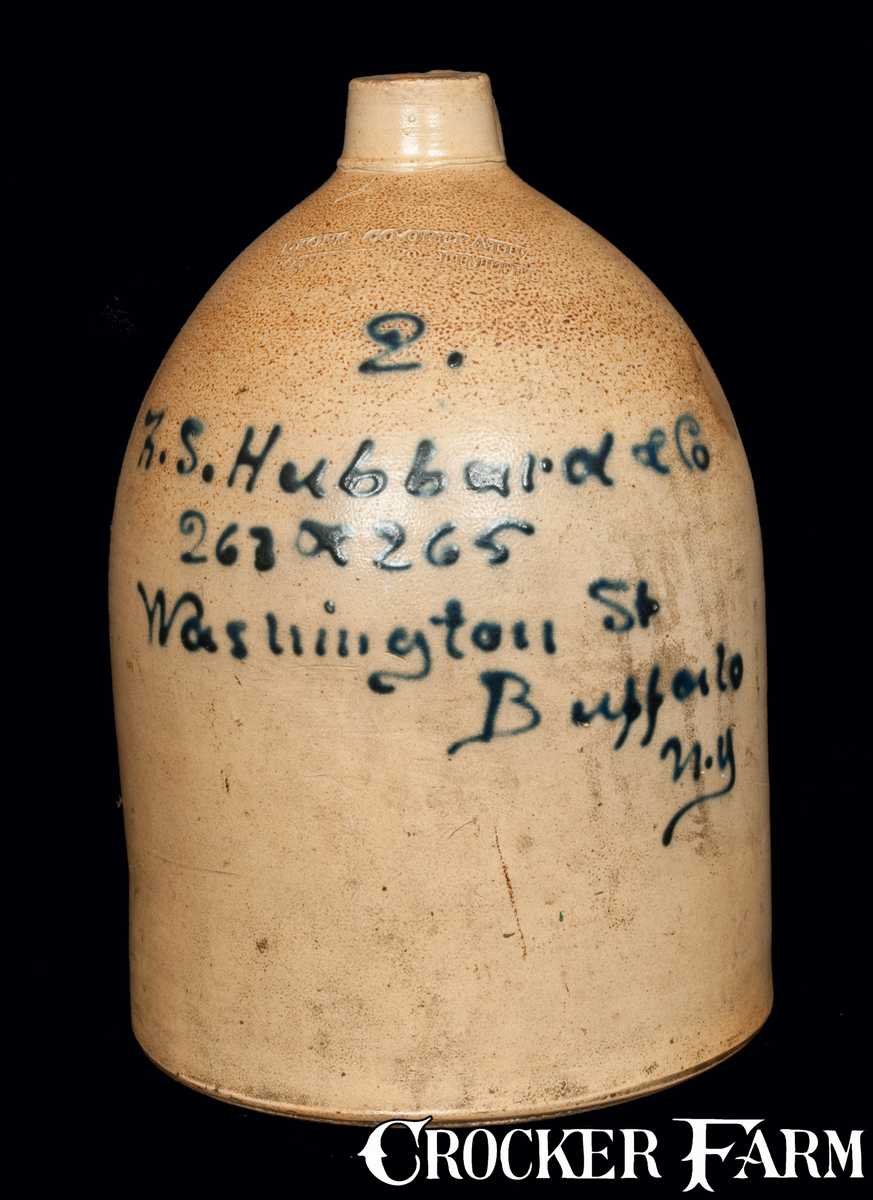 2.
S. Hubbard & Co
263 & 265
Washington St
Buffalo
N.Y
CROCKER FARM